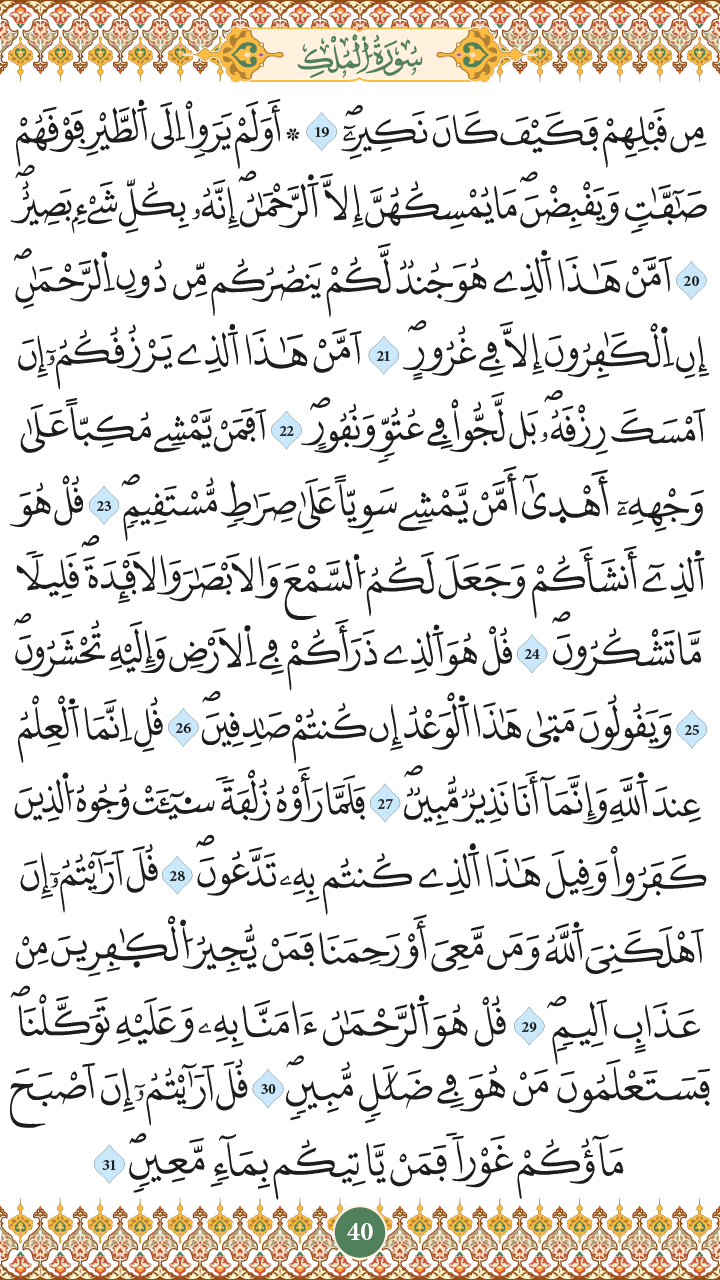 سُورَةُ الْمُلْكِ
مِن قَبْلِهِمْ فَكَيْفَ كَانَ نَكِيرِۦٓۖ 19 ۞ أَوَلَمْ يَرَوِاْ اِلَى اَ۬لطَّيْرِ فَوْقَهُمْ
صَٰٓفَّٰتٖ وَيَقْبِضْنَۖ مَا يُمْسِكُهُنَّ إِلَّا اَ۬لرَّحْمَٰنُۖ إِنَّهُۥ بِكُلِّ شَےْءِۢ بَصِيرٌۖ
20 اَمَّنْ هَٰذَا اَ۬لذِے هُوَ جُندٞ لَّكُمْ يَنصُرُكُم مِّن دُونِ اِ۬لرَّحْمَٰنِۖ
إِنِ اِ۬لْكَٰفِرُونَ إِلَّا فِے غُرُورٍۖ 21 اَمَّنْ هَٰذَا اَ۬لذِے يَرْزُقُكُمُۥٓ إِنَ
اَمْسَكَ رِزْقَهُۥۖ بَل لَّجُّواْ فِے عُتُوّٖ وَنُفُورٍۖ 22 اَفَمَنْ يَّمْشِے مُكِبّاً عَلَىٰ
وَجْهِهِۦٓ أَهْد۪ىٰٓ أَمَّنْ يَّمْشِے سَوِيّاً عَلَىٰ صِرَٰطٖ مُّسْتَقِيمٖۖ 23 قُلْ هُوَ
اَ۬لذِےٓ أَنشَأَكُمْ وَجَعَلَ لَكُمُ اُ۬لسَّمْعَ وَالَابْصَٰرَ وَالَافْـِٕدَةَۖ قَلِيلٗا
مَّا تَشْكُرُونَۖ 24 قُلْ هُوَ اَ۬لذِے ذَرَأَكُمْ فِے اِ۬لَارْضِ وَإِلَيْهِ تُحْشَرُونَۖ
25 وَيَقُولُونَ مَت۪ىٰ هَٰذَا اَ۬لْوَعْدُ إِن كُنتُمْ صَٰدِقِينَۖ 26 قُلِ اِنَّمَا اَ۬لْعِلْمُ
عِندَ اَ۬للَّهِ وَإِنَّمَآ أَنَا نَذِيرٞ مُّبِينٞۖ 27 فَلَمَّا رَأَوْهُ زُلْفَةٗ سِيٓـَٔتْ وُجُوهُ اُ۬لذِينَ
كَفَرُواْ وَقِيلَ هَٰذَا اَ۬لذِے كُنتُم بِهِۦ تَدَّعُونَۖ 28 قُلَ اَرَٰٓيْتُمُۥٓ إِنَ
اَهْلَكَنِيَ اَ۬للَّهُ وَمَن مَّعِيَ أَوْ رَحِمَنَا فَمَنْ يُّجِيرُ اُ۬لْكٰ۪فِرِينَ مِنْ
عَذَابٍ اَلِيمٖۖ 29 قُلْ هُوَ اَ۬لرَّحْمَٰنُ ءَامَنَّا بِهِۦ وَعَلَيْهِ تَوَكَّلْنَاۖ
فَسَتَعْلَمُونَ مَنْ هُوَ فِے ضَلَٰلٖ مُّبِينٖۖ 30 قُلَ اَرَٰٓيْتُمُۥٓ إِنَ اَصْبَحَ
مَآؤُكُمْ غَوْراٗ فَمَنْ يَّاتِيكُم بِمَآءٖ مَّعِينٖۖ 31
40